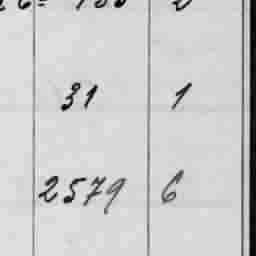 31 1
2579 6